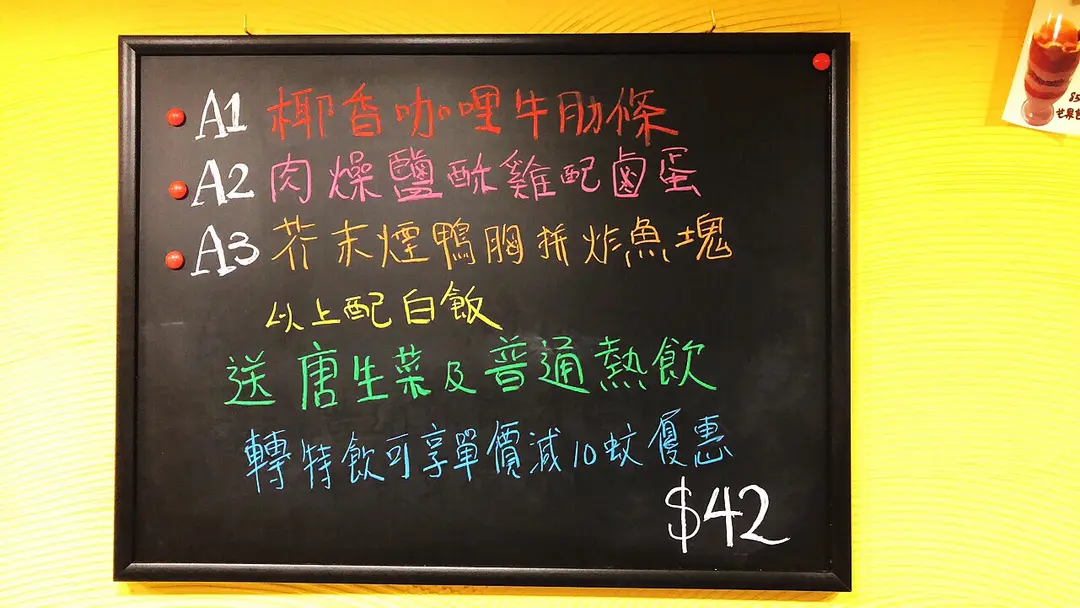 A1 椰香咖哩牛肋條
A2 肉燥鹽酥雞配鹵蛋
A3 芥末煙鴨胸拼炸魚塊
以上配白飯
送唐生菜及普通熱飲
轉特飲可享單價減10蚊優惠
$42